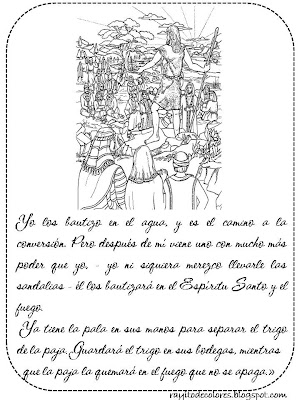 Yo los bautizo en el agua, y es el camino a la
conversión. Pero después de mí viene uno con mucho más
poder que yo, - yo ni siquiera merezco llevarle las
sandalias - él los bautizará en el Espíritu Santo y el
fuego.
Ya tiene la pala en sus manos para separar el trigo
de la paja. Guardará el trigo en sus bodegas, mientras
que la paja la quemará en el fuego que no se apaga.»
rayitodecolores.blogspot.com